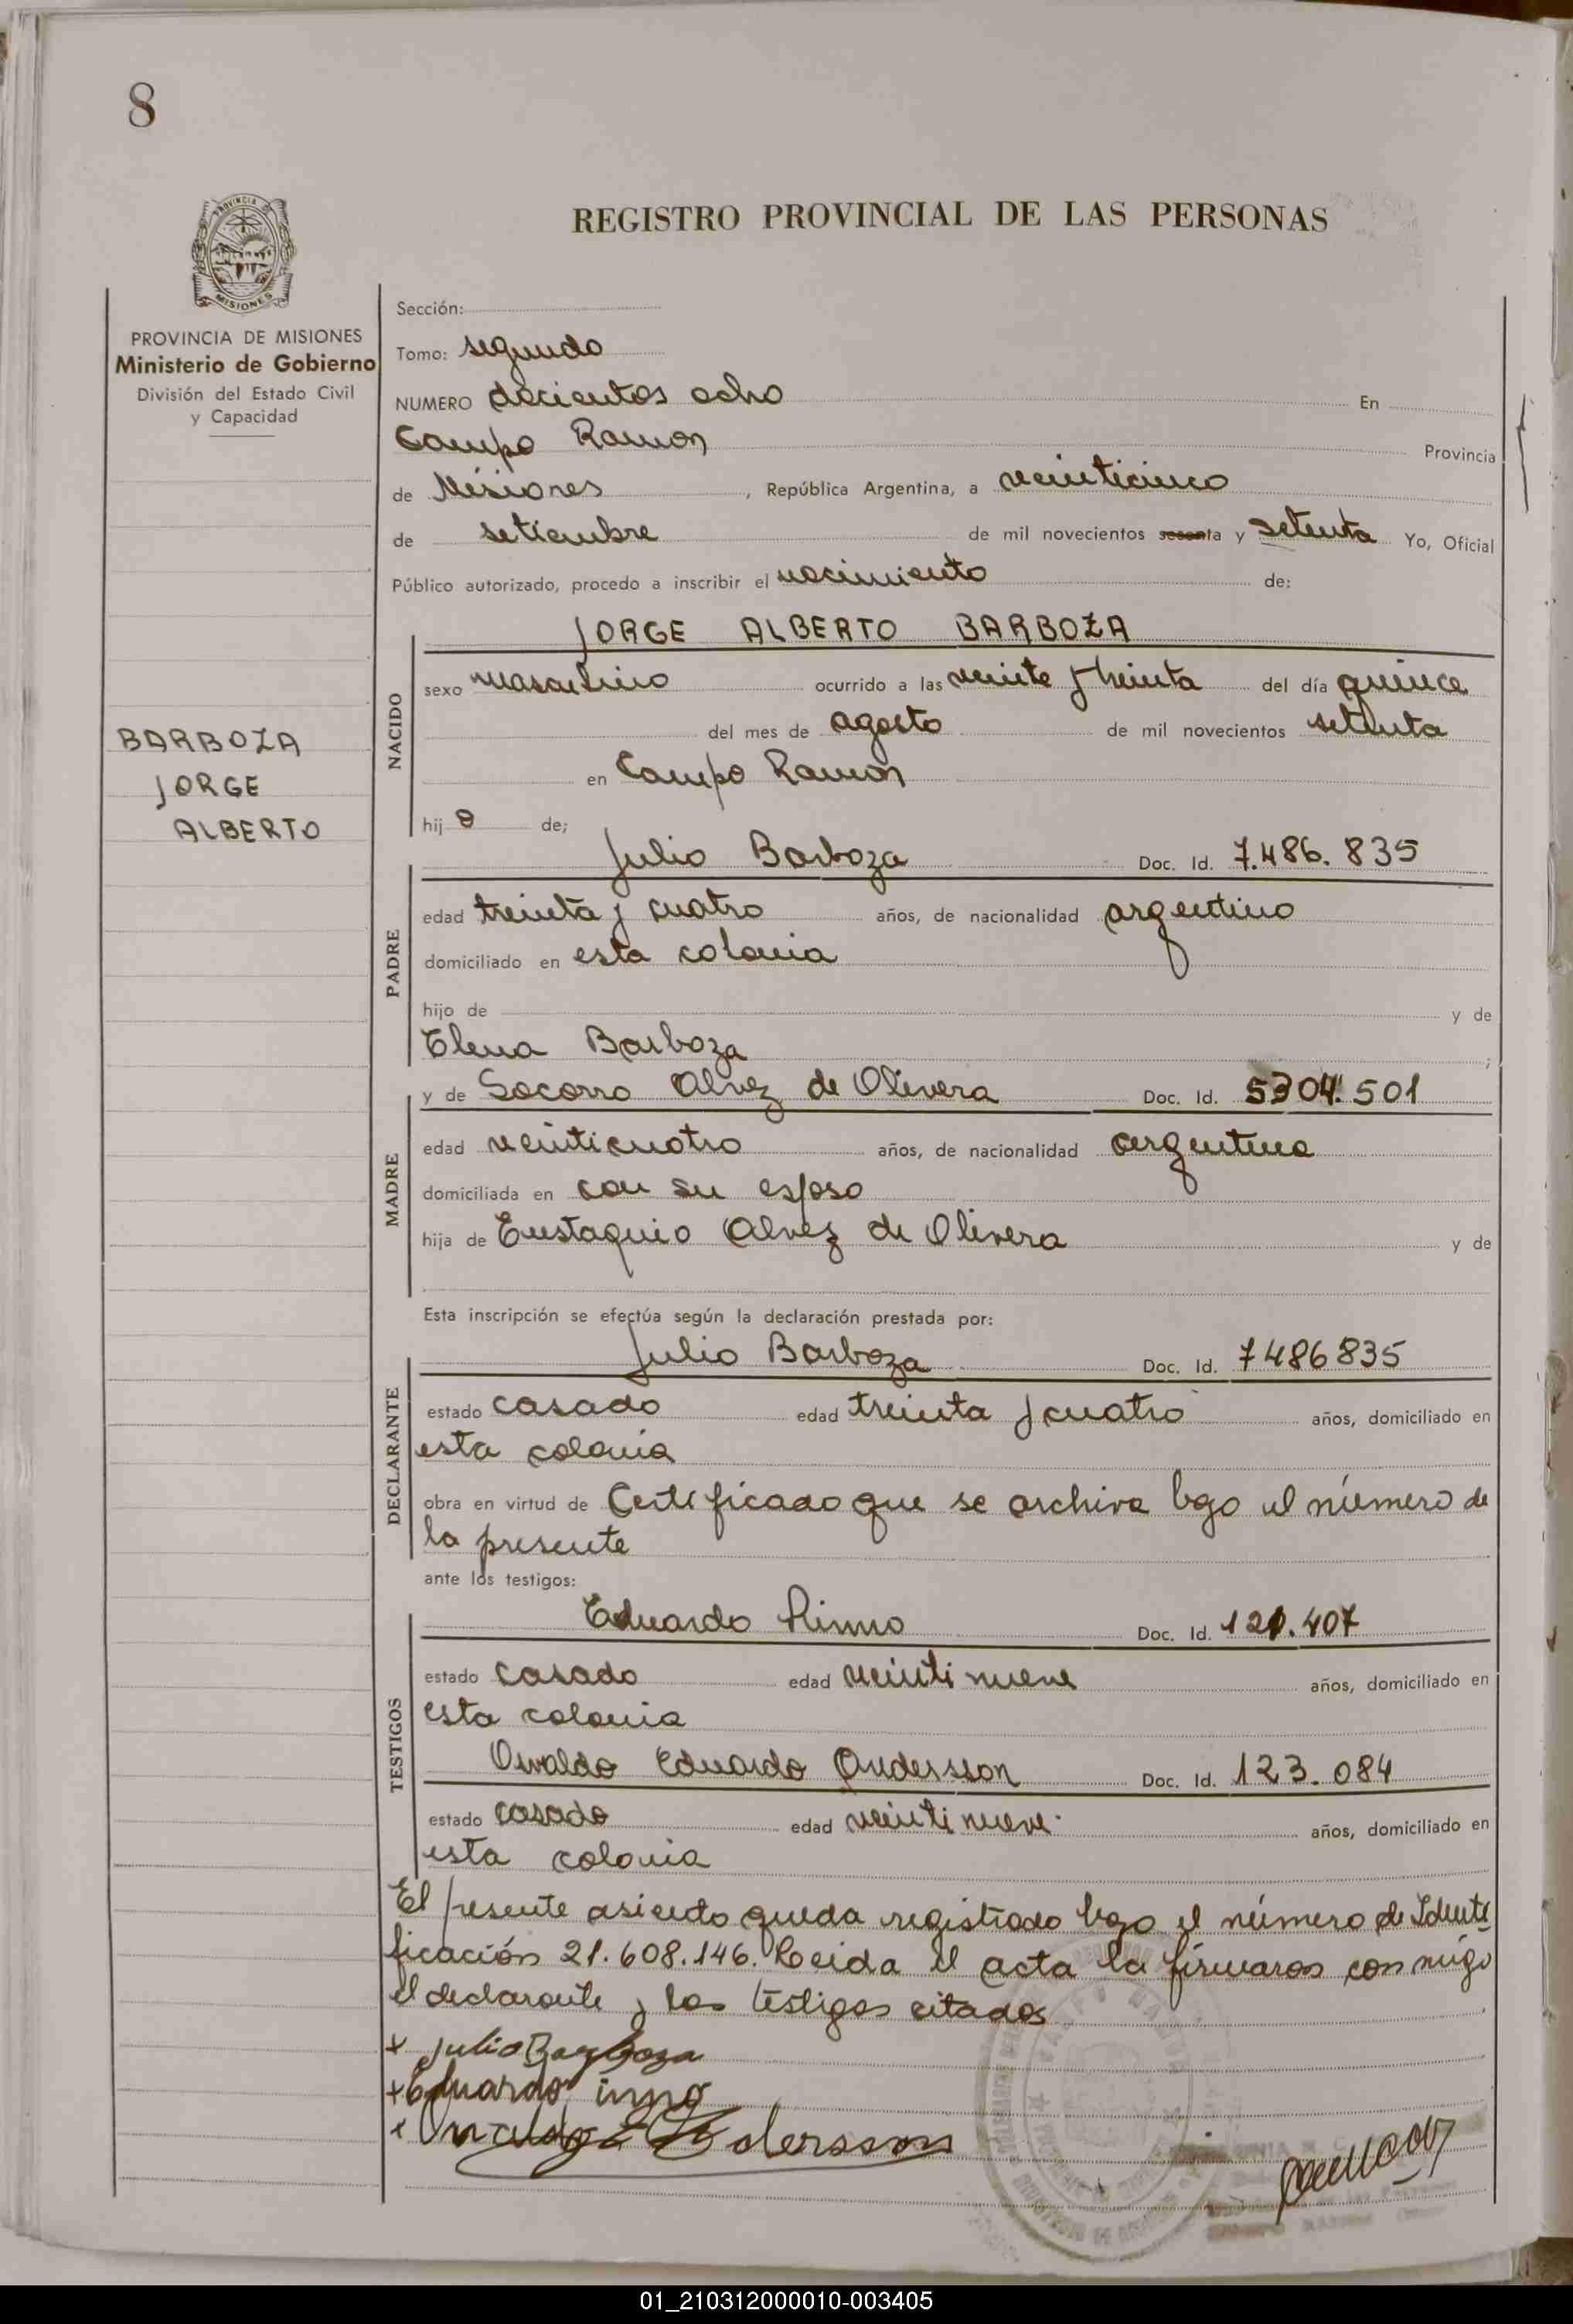 8
REGISTRO PROVINCIAL DE LAS PERSONAS
PROVINCIA
MISIONES
PROVINCIA DE MISIONES
Ministerio de Gobierno
División del Estado Civil
y Capacidad
Sección:
Tomo: segundo
NUMERO docientos ocho En
Campo Ramon Provincia
de Misiones, República Argentina, a veinticinco
de setiembre de mil novecientos sesenta y setenta Yo, Oficial
Público autorizado, procedo a inscribir el nacimiento de:
JORGE ALBERTO BARBOZA
NACIDO
sexo masculino ocurrido a las veinte y treinta del día quince
del mes de agosto de mil novecientos setenta
en Campo Ramon
hij o de;
BARBOZA
JORGE
ALBERTO
Julio Barboza Doc. Id. 7.486.835
PADRE
edad treinta y cuatro años, de nacionalidad argentino
domiciliado en esta colonia
hijo de y de
Elena Barboza ;
y de Socorro Alvez de Olivera Doc. Id. 5304.501
MADRE
edad veinticuatro años, de nacionalidad argentina
domiciliada en con su esposo
hija de Eustaquio Alvez de Olivera y de
Esta inscripción se efectúa según la declaración prestada por:
Julio Barboza Doc. Id. 7486835
DECLARANTE
estado casado edad treinta y cuatro años, domiciliado en
esta colonia
obra en virtud de Certificado que se archiva bajo el número de
la presente
ante los testigos:
Eduardo Doc. Id. 121.407
TESTIGOS
estado casado edad veinti nueve años, domiciliado en
esta colonia
Osvaldo Eduardo Andersson Doc. Id. 123.084
estado casado edad veinti nueve años, domiciliado en
esta colonia
El presente asiento queda registrado bajo el número de Identi
ficación 21.608.146. Leida el acta la firmaron conmigo
el declarante y los testigos citados
+ Julio Barboza
+ Eduardo
+ Osvaldo E Andersson
01_210312000010-003405